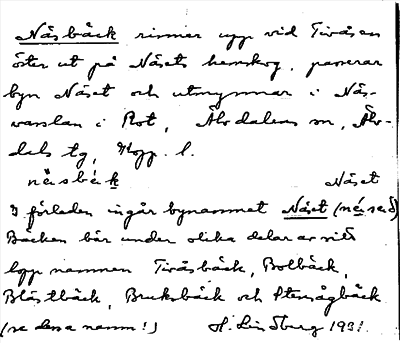 Näsbäck rinner upp vid Tivåsen
öster ut på Näsets hemskog, passerar
byn Näset och utmynnar i Näs-
varslan i Rot, Älvdalens sn, Älv-
dals tg, Kopp. l.
näsbäk Näset
I förleden ingår bynamnet Näset (näsed)
Bäcken bär under olika delar av sitt
lopp namnen Tivåsbäck, Bolbäck,
Blästbäck, Bruksbäck och Stensågbäck
(se dessa namn!) H. Lindberg 1931.